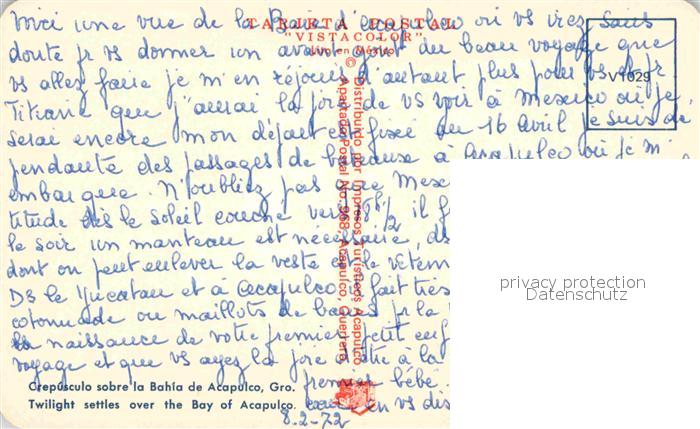 TARJETA POSTAL
"VISTACOLOR"
Hecho en México
Voici une vue de la Baie d'Acapulco où vs irez sans
doute pr vs donner un avant goût du beau voyage que
vs allez faire je m'en réjouis d'autant plus pour vs
Titiane que j'aurai la joie de vs voir à Mexico où je
serai encore mon départ est fixé au 16 Avril je suis dé
pendante des passages de bateaux à Acapulco où je m'
embarque. N'oubliez pas que Mexi
titude dès le soleil couché vers 6h 1/2 il f
le soir un manteau est nécessaire, ds
dont on peut enlever la veste est le vêtem
Ds le Yucatan et à Acapulco il fait très
cotonnade ou maillots de bains pr la
la naissance de votre premier petit enf
voyage et que vs ayez la joie d'être à la
premier bébé
en vs dis
8.2-72
V1029
© Distribuido por Impresos Turísticos Acapulco
Apartado Postal No. 968, Acapulco, Guerrero
Crepúsculo sobre la Bahía de Acapulco, Gro.
Twilight settles over the Bay of Acapulco.
privacy protection
Datenschutz